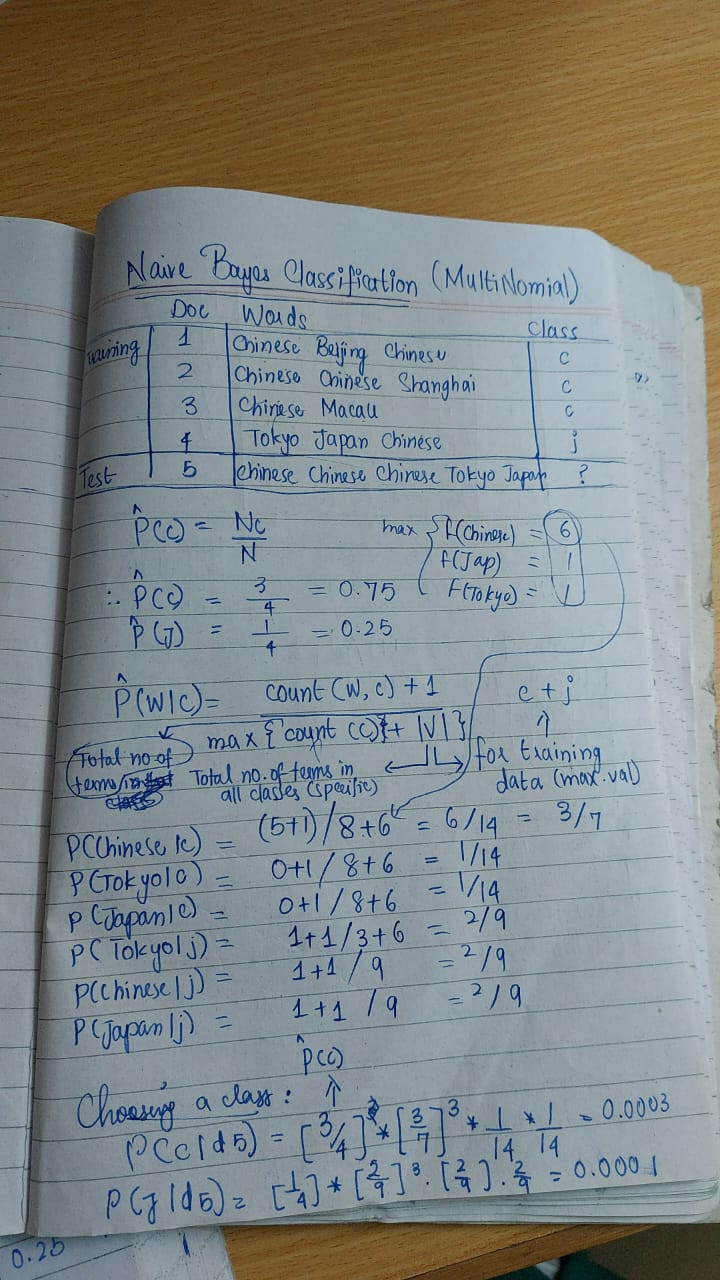 Naive Bayes Classification (MultiNomial)
Doc Words Class
Training 1 Chinese Beijing Chinese c
2 Chinese Chinese Shanghai c
3 Chinese Macau c
4 Tokyo Japan Chinese j
Test 5 Chinese Chinese Chinese Tokyo Japan ?
P̂(c) = Nc/N max { f(Chinese) = 6
f(Jap) = 1
f(Tokyo) = 1
∴ P̂(c) = 3/4 = 0.75
P̂(J) = 1/4 = 0.25
P̂(w|c) = count (w, c) + 1 c + j
max { count (c) } + |V| }
Total no of terms/in
Total no. of terms in all classes (specific)
for training data (max. val)
P(Chinese|c) = (5+1)/8+6 = 6/14 = 3/7
P(Tokyo|c) = 0+1/8+6 = 1/14
P(Japan|c) = 0+1/8+6 = 1/14
P(Tokyo|j) = 1+1/3+6 = 2/9
P(Chinese|j) = 1+1/9 = 2/9
P(Japan|j) = 1+1/9 = 2/9
P̂(c)
Choosing a class : ↑
P(c|d5) = [3/4] * [3/7]³ * 1/14 * 1/14 = 0.0003
P(J|d5) = [1/4] * [2/9]³ . [2/9] . 2/9 = 0.0001
0.25